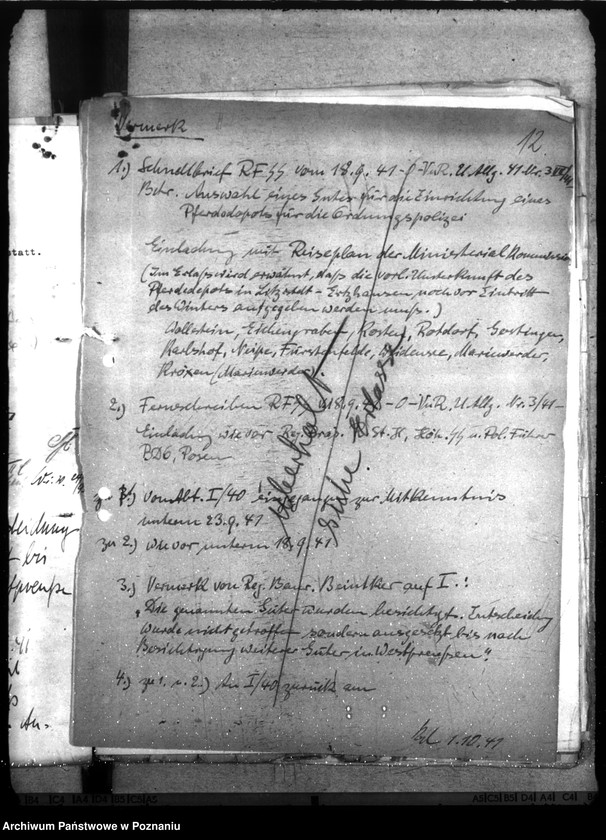 12
Vermerk
1.) Schnellbrief RFSS vom 18.9.41 - O-VuR. U Allg. 41 Nr. 3
Betr. Auswahl eines Gutes für die Einrichtung eines
Pferdedepots für die Ordnungspolizei
Einladung mit Reiseplan der Ministerial Kommission
(Im Erlass wird erwähnt, daß die vorl. Unterkunft des
Pferdedepots in Litzmstdt - Erzhausen noch vor Eintritt
des Winters aufgegeben werden muss.)
Eichengraben, Kosten, Rotdorf, Gostingen,
Karlshof, Fürstenfelde, Marienwerder,
(Marienwerder)
2.) Fernschreiben RFSS 18.9. - O-VuR. U Allg. Nr. 3/41 -
Einladung wie vor Reg. Präs. St. H, Höh. SS u. Pol. Führer
BDO, Posen
zu 1.) von Abt. I/40 eingegangen zur Mitkenntnis
unterm 23.9.41
zu 2.) wie vor unterm 18.9.41
3.) Vermerk von Reg. Baur. Beintker auf I.:
"Die genannten Güter wurden besichtgt. Entscheidung
wurde nicht getroffen sondern ausgesetzt bis nach
Besichtigung weiterer Güter in Westpreußen".
4.) zu 1. u. 2.) An I/40 zurück am
1.10.41
Überholt.
Siehe Erlass
statt.
bis
An-
Archiwum Państwowe w Poznaniu